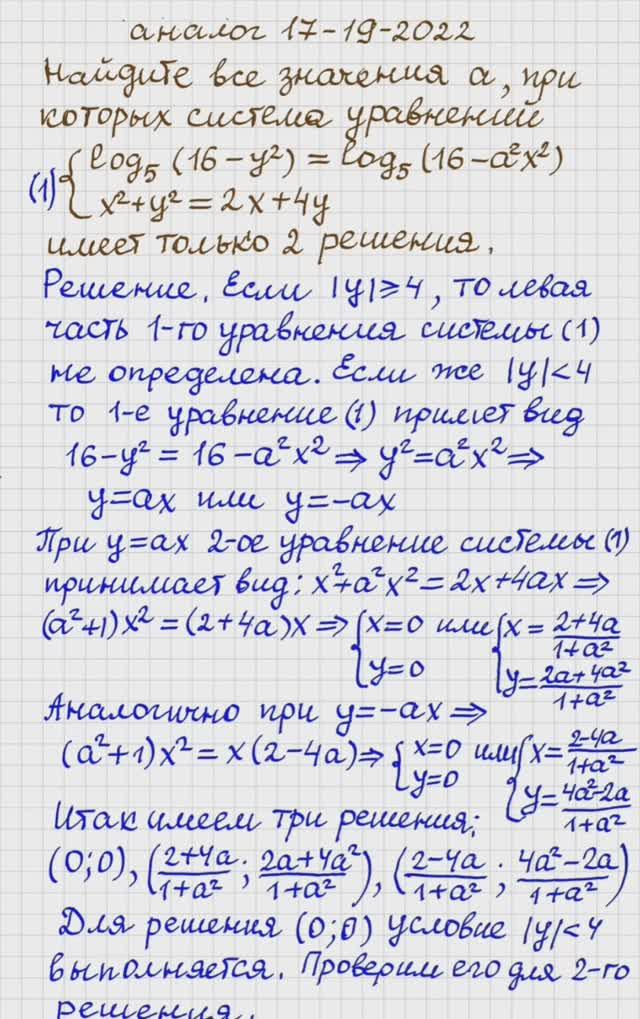 аналог 17-19-2022
Найдите все значения a, при
которых система уравнений
(1) { log₅ (16 - y²) = log₅ (16 - a²x²)
x² + y² = 2x + 4y
имеет только 2 решения.
Решение. Если |y| ≥ 4, то левая
часть 1-го уравнения системы (1)
не определена. Если же |y| < 4
то 1-е уравнение (1) примет вид
16 - y² = 16 - a²x² ⇒ y² = a²x² ⇒
y = ax или y = -ax
При y = ax 2-ое уравнение системы (1)
принимает вид: x² + a²x² = 2x + 4ax ⇒
(a² + 1) x² = (2 + 4a) x ⇒ { x = 0 или { x = (2 + 4a)/(1 + a²)
y = 0 y = (2a + 4a²)/(1 + a²)
Аналогично при y = -ax ⇒
(a² + 1) x² = x (2 - 4a) ⇒ { x = 0 или { x = (2 - 4a)/(1 + a²)
y = 0 y = (4a² - 2a)/(1 + a²)
Итак имеем три решения:
(0; 0), ((2 + 4a)/(1 + a²); (2a + 4a²)/(1 + a²)), ((2 - 4a)/(1 + a²); (4a² - 2a)/(1 + a²))
Для решения (0; 0) условие |y| < 4
выполняется. Проверим его для 2-го
решения.